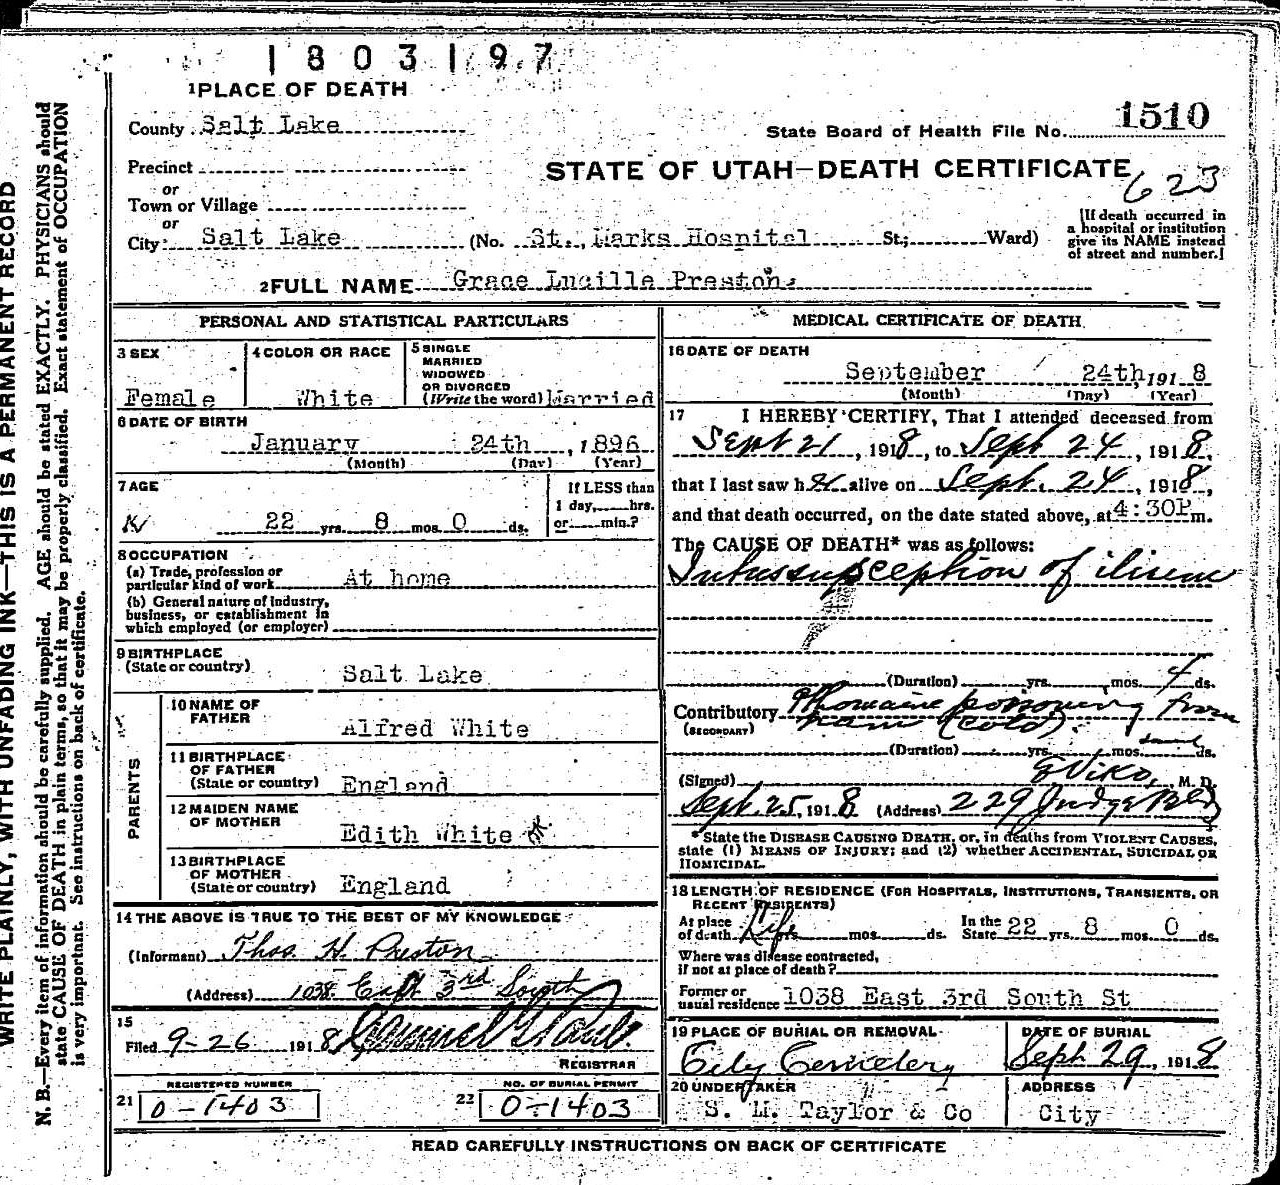 1803197
1 PLACE OF DEATH
County Salt Lake
State Board of Health File No. 1510
Precinct
STATE OF UTAH—DEATH CERTIFICATE
623
or
Town or Village
or
City: Salt Lake (No. St., Marks Hospital St.; Ward)
[If death occurred in
a hospital or institution
give its NAME instead
of street and number.]
2 FULL NAME Grace Lucille Preston.
PERSONAL AND STATISTICAL PARTICULARS
3 SEX
Female
4 COLOR OR RACE
White
5 SINGLE
MARRIED
WIDOWED
OR DIVORCED
(Write the word) Married
6 DATE OF BIRTH
January 24th, 1896
(Month) (Day) (Year)
7 AGE
22 yrs. 8 mos. 0 ds.
If LESS than
1 day, hrs.
or min.?
8 OCCUPATION
(a) Trade, profession or
particular kind of work At home
(b) General nature of industry,
business, or establishment in
which employed (or employer)
9 BIRTHPLACE
(State or country)
Salt Lake
PARENTS
10 NAME OF
FATHER
Alfred White
11 BIRTHPLACE
OF FATHER
(State or country) England
12 MAIDEN NAME
OF MOTHER
Edith White
13 BIRTHPLACE
OF MOTHER
(State or country) England
14 THE ABOVE IS TRUE TO THE BEST OF MY KNOWLEDGE
(Informant) Thos. H. Preston
(Address) 1038 East 3rd South
15
Filed 9-26 1918
REGISTRAR
REGISTERED NUMBER
21 0-1403
NO. OF BURIAL PERMIT
22 0-1403
MEDICAL CERTIFICATE OF DEATH
16 DATE OF DEATH
September 24th, 1918
(Month) (Day) (Year)
17 I HEREBY CERTIFY, That I attended deceased from
Sept 21, 1918, to Sept 24, 1918,
that I last saw her alive on Sept. 24, 1918,
and that death occurred, on the date stated above, at 4:30P m.
The CAUSE OF DEATH* was as follows:
Intussusception of ilium
(Duration) yrs. mos. 4 ds.
Contributory Ptomaine poisoning from
(SECONDARY) ham (cold).
(Duration) yrs. mos. ds.
(Signed) E Viko, M. D.
Sept. 25, 1918 (Address) 229 Judge Bldg
*State the DISEASE CAUSING DEATH, or, in deaths from VIOLENT CAUSES,
state (1) MEANS OF INJURY; and (2) whether ACCIDENTAL, SUICIDAL OR
HOMICIDAL.
18 LENGTH OF RESIDENCE (FOR HOSPITALS, INSTITUTIONS, TRANSIENTS, OR
RECENT RESIDENTS)
At place
of death Life yrs. mos. ds.
In the
State 22 yrs. 8 mos. 0 ds.
Where was disease contracted,
if not at place of death?
Former or
usual residence 1038 East 3rd South St
19 PLACE OF BURIAL OR REMOVAL
City Cemetery
DATE OF BURIAL
Sept 29, 1918
20 UNDERTAKER
S. M. Taylor & Co
ADDRESS
City
READ CAREFULLY INSTRUCTIONS ON BACK OF CERTIFICATE
WRITE PLAINLY, WITH UNFADING INK—THIS IS A PERMANENT RECORD
N. B.—Every item of information should be carefully supplied. AGE should be stated EXACTLY. PHYSICIANS should
state CAUSE OF DEATH in plain terms, so that it may be properly classified. Exact statement of OCCUPATION
is very important. See instructions on back of certificate.